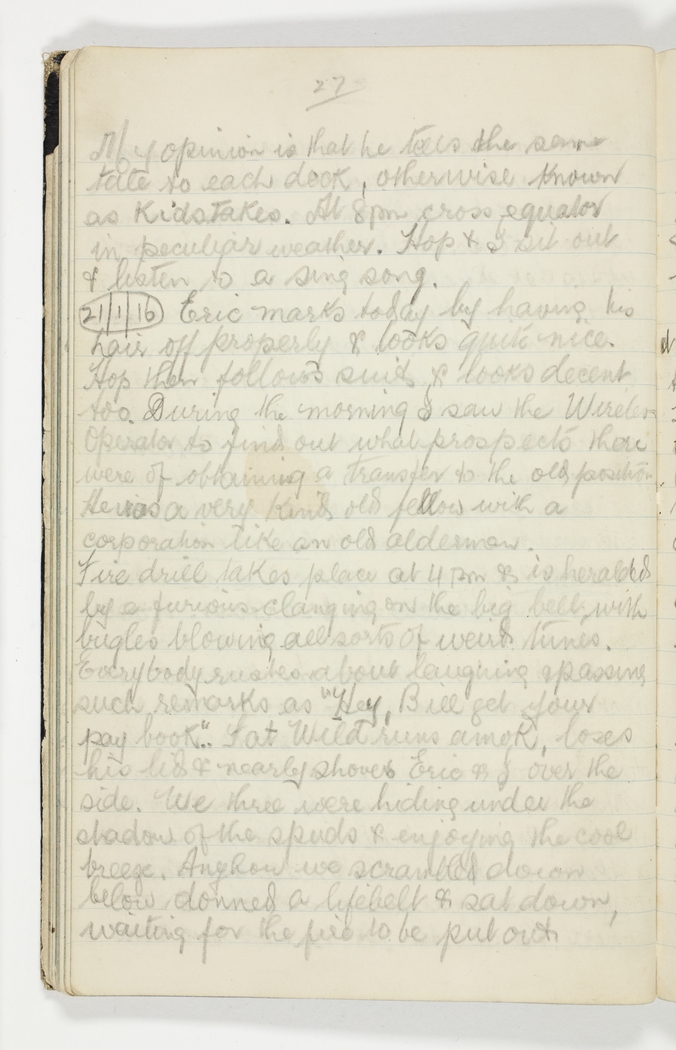 27
My opinion is that he tells the same
tale to each deck, otherwise known
as Kidstakes. At 8pm cross equator
in peculiar weather. Hop & I sit out
& listen to a sing song.
21/1/16 Eric marks today by having his
hair off properly & looks quite nice.
Hop then follows suit & looks decent
too. During the morning I saw the Wireless
Operator to find out what prospects there
were of obtaining a transfer to the old position
He was a very kind old fellow with a
corporation like an old alderman.
Fire drill takes place at 4 pm & is heralded
by a furious clanging on the big bell, with
bugles blowing all sorts of weird tunes.
Everybody rushes about laughing & passing
such remarks as "Hey, Bill get your
pay book". Fat Wild runs amok, loses
his lid & nearly shoves Eric & I over the
side. We three were hiding under the
shadow of the spuds & enjoying the cool
breeze. Anyhow we scrambled down
below donned a lifebelt & sat down,
waiting for the fire to be put out.